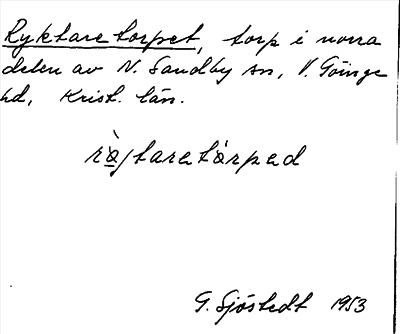 Ryktaretorpet, torp i norra
delen av N. Sandby sn, V. Göinge
hd, Krist. län.
G. Sjöstedt 1953